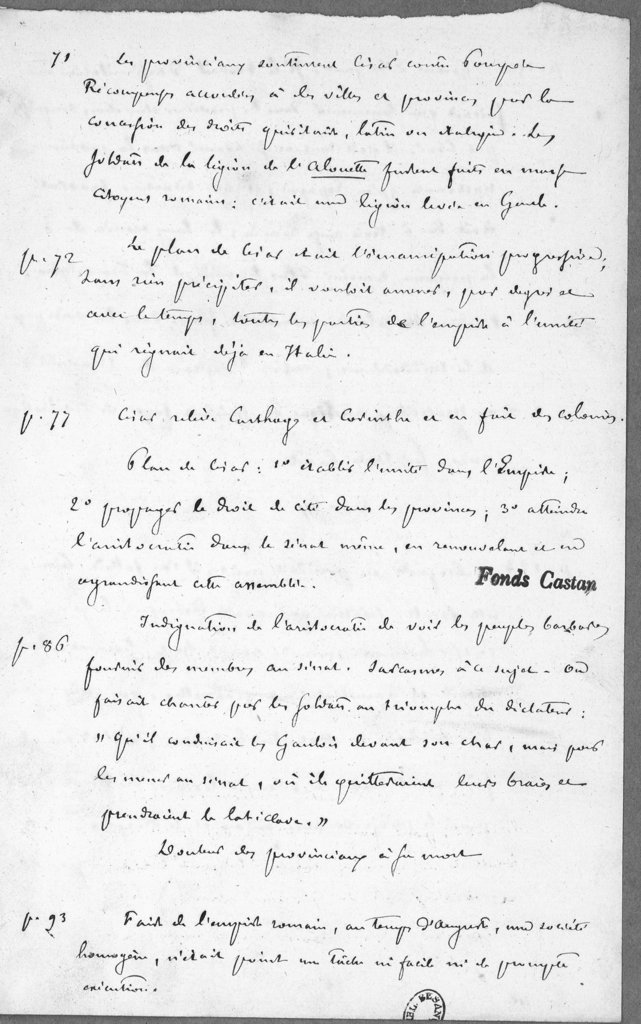 71 Les provinciaux soutinrent César contre Pompée
Récompenses accordées à des villes et provinces par la
concession des droits quiritaire, latin ou italique. Les
soldats de la légion de l'Alouette furent faits en masse
citoyens romains : c'était une légion levée en Gaule.
p. 72 Le plan de César était l'émancipation progressive ;
sans rien précipiter, il voulait amener, par degrés et
avec le temps, toutes les parties de l'empire à l'unité
qui régnait déjà en Italie.
p. 77 César relève Carthage et Corinthe et en fait des colonies.
Plan de César : 1º établir l'unité dans l'Empire ;
2º propager le droit de cité dans les provinces ; 3º atteindre
l'aristocratie dans le sénat même, en renouvelant et en
agrandissant cette assemblée.
Fonds Castan
Indignation de l'aristocratie de voir les peuples barbares
p. 86
fournir des membres au sénat. Sarcasmes à ce sujet. On
faisait chanter par les soldats au triomphe du dictateur :
" qu'il conduisait les Gaulois devant son char, mais pour
les mener au sénat, où ils quitteraient leurs braies et
prendraient le laticlave. "
Douleur des provinciaux à sa mort
p. 93 Faire de l'empire romain, au temps d'Auguste, une société
homogène, n'était point une tâche ni facile ni de prompte
exécution.